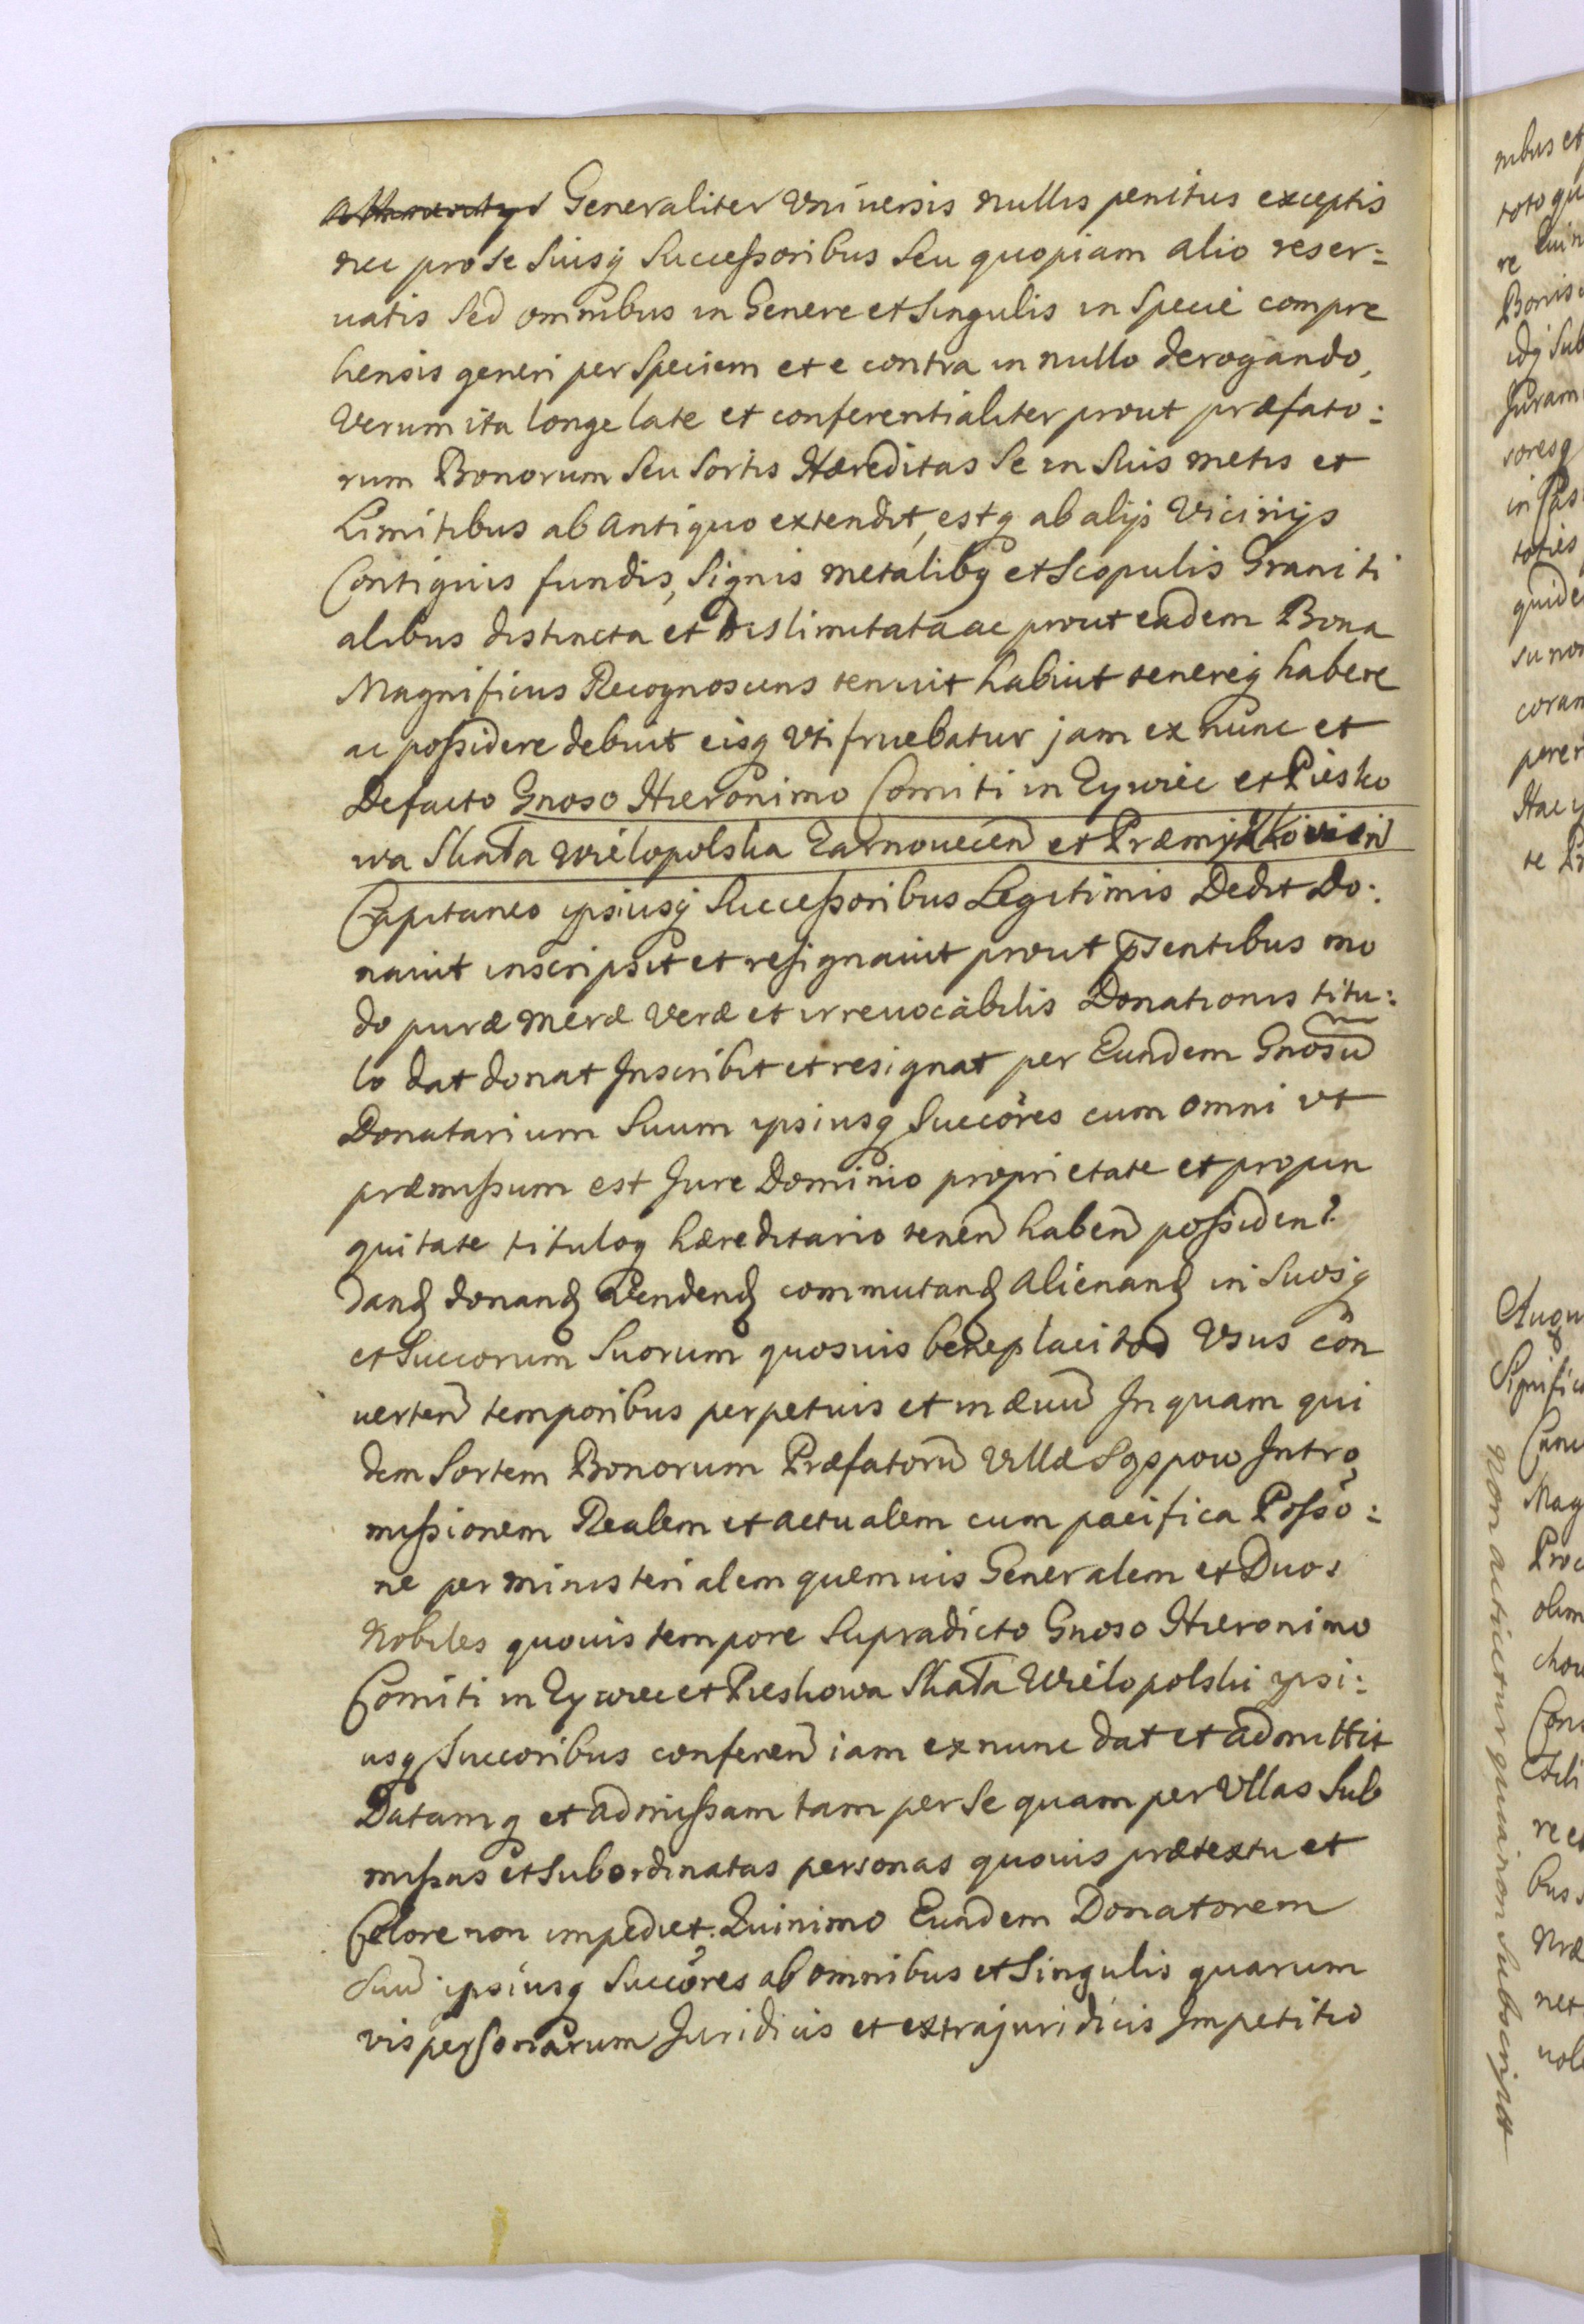 attinentijs Generaliter Vniuersis nullis penitus exceptis
nec pro se Suisq Successoribus Seu quopiam alio reser:
uatis Sed omnibus in Genere et Singulis in Specie compre
hensis generi per Speciem et e contra in nullo derogando,
Verum ita longe late et conferentialiter prout præfato:
rum Bonorum Seu Sortis Hæreditas Se in Suis metis et
Limitibus ab antiquo extendit, estq ab alijs Vicinijs
Contiguis fundis, Signis metalibq et Scopulis Graniti
alibus distincta et Dislimitata ac prout eadem Bona
Magnificus Recognoscens tenuit habuit tenereq habere
ac possidere debuit eisq Vti fruebatur jam ex nunc et
Defacto Gnoso Hieronimo Comiti in Zywiec et Piesko
wa Skała Wielopolska Zarnouecen̄ et Præmy
Capitaneo ipsiusq Successoribus Legitimis Dedit Do:
nauit inscripsit et resignauit prout p̄sentibus mo
do puræ meræ Veræ et irreuocabilis Donationis titu:
lo dat donat Inscribit et resignat per Eundem Gnosū
Donatarium Suum ipsiusq Succōres cum omni vt
præmissum est Jure Dominio proprietate et propin
quitate tituloq hæreditario tenen̄ haben̄ possiden̄
dand donand Vendend commutand alienand in Suosq
et Succorum Suorum quosuis beneplacitos Vsus cōn
uerten̄ temporibus perpetuis et in æuū In quam qui
dem Sortem Bonorum Præfatorū Villæ Sgspow Intro
missionem Realem et actualem cum pacifica Possō:
ne per ministerialem quemuis Generalem et Duos
Nobiles quouis tempore Supradicto Gnoso Hieronimo
Comiti in Zywiec et Pieskowa Skała Wielopolski ipsi:
usq Succoribus conferen̄ iam ex nunc dat et admittit
Datamq et admissam tam per Se quam per Vllas Sub
missas et Subordinatas personas quouis prætextu et
Colore non impediet. Quinimo Eundem Donatorem
Suū ipsiusq Succōres ab omnibus et Singulis quarum
vis personarum Juridicis et extrajuridicis Impetitio
nibus et
Bonis
non actricetur quia non Subscripsit